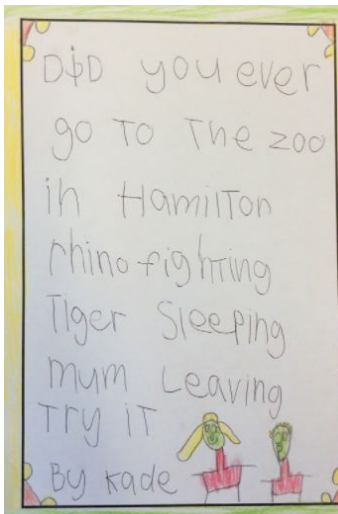 DiD you ever
go To The zoo
in HamilTon
rhino fighting
Tiger Sleeping
mum Leaving
Try iT
By kade